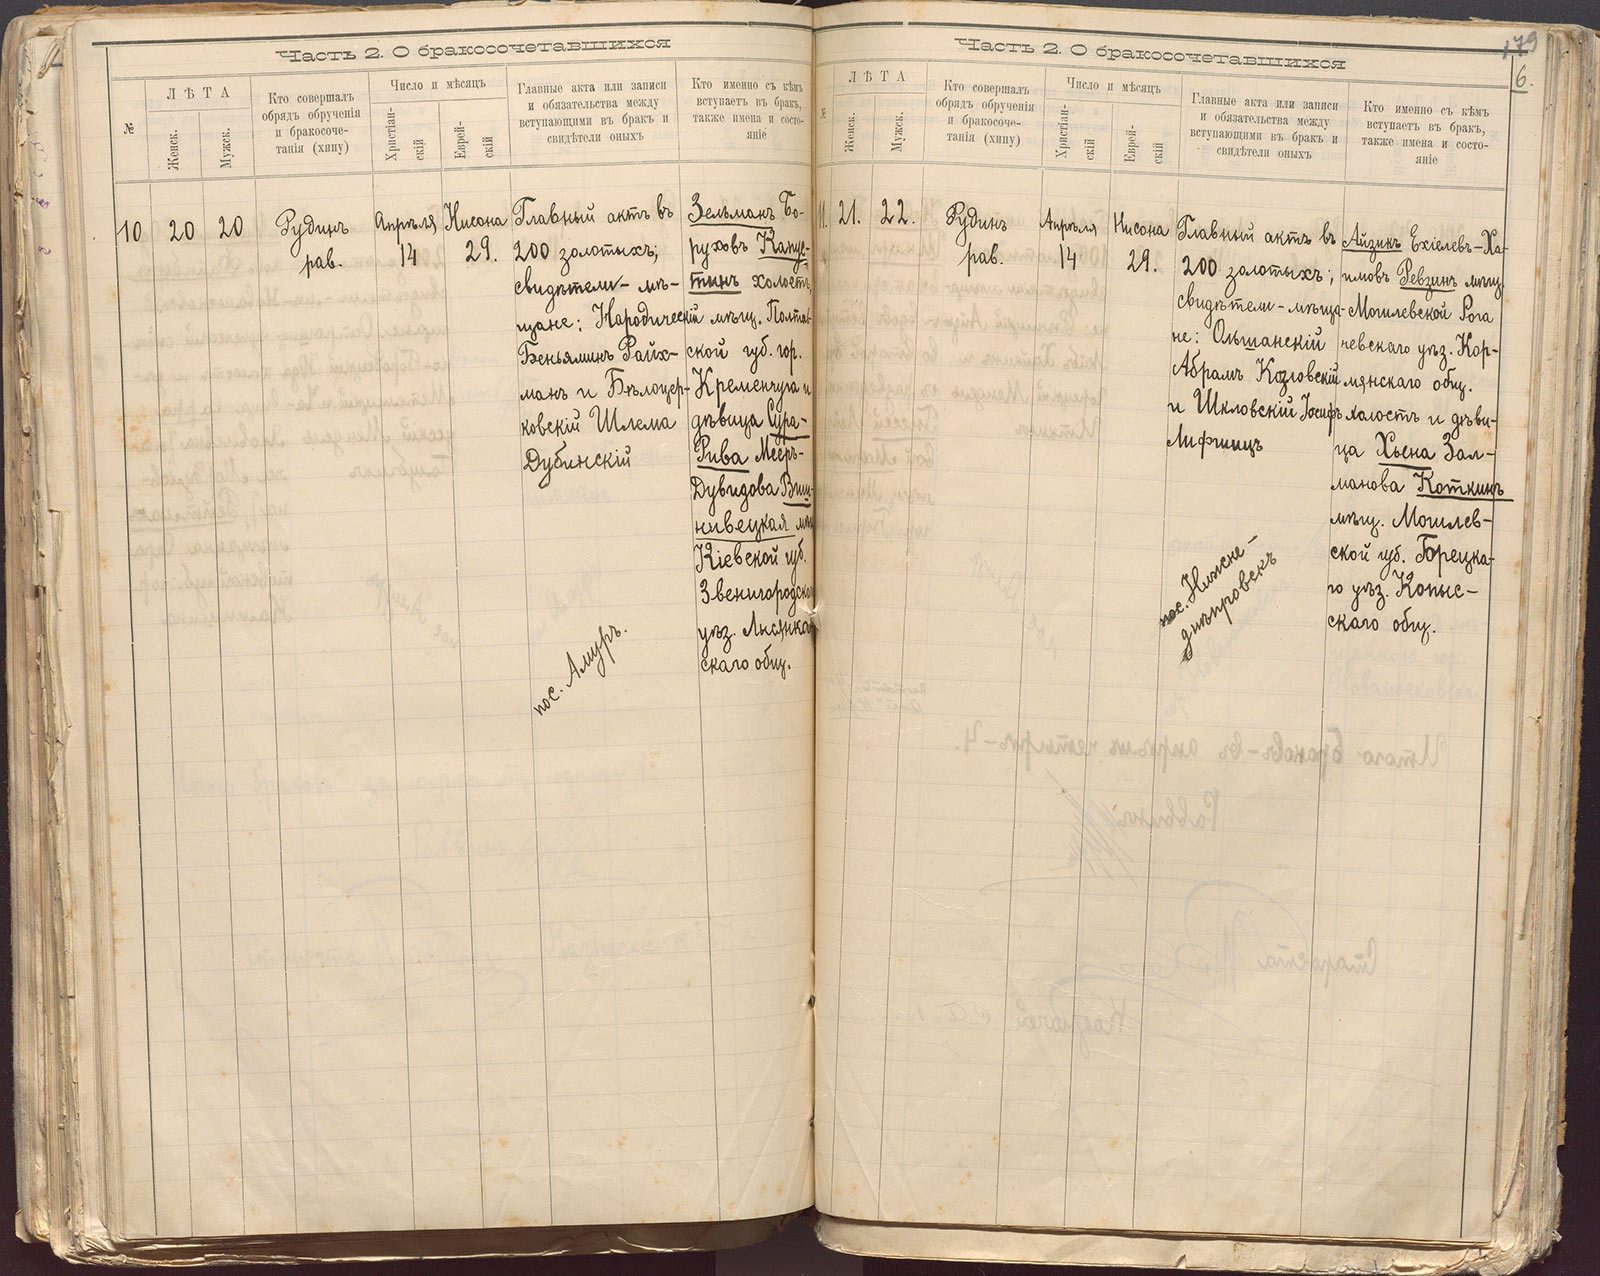 Часть 2. О бракосочетавшихся
№
ЛѢТА
Женск.
Мужск.
Кто совершалъ
обрядъ обрученія
и бракосоче-
танія (хипу)
Число и мѣсяцъ
Христіан-
скій
Еврей-
скій
Главные акта или записи
и обязательства между
вступающими въ бракъ и
свидѣтели оныхъ
Кто именно съ кѣмъ
вступаетъ въ бракъ,
также имена и состо-
яніе
10
20
20
Рудинъ
рав.
Апрѣля
14
Нисона
29.
Главный актъ въ
200 золотыхъ;
свидѣтели – мѣ-
щане: Народическій
Беньяминъ Райх-
манъ и Бѣлоцер-
ковскій Шлема
Дубинскій
пос. Амуръ.
Зельманъ Бо-
руховъ Капус-
тинъ холостъ
мѣщ. Полтав-
ской губ. гор.
Кременчуга и
дѣвица Сура-
Рива Мееръ-
Дувидова Виш-
нивецкая мѣщ
Кіевской губ.
Звенигородска
уѣз. Лисянка
скаго общ.
179
6.
Часть 2. О бракосочетавшихся
№
ЛѢТА
Женск.
Мужск.
Кто совершалъ
обрядъ обрученія
и бракосоче-
танія (хипу)
Число и мѣсяцъ
Христіан-
скій
Еврей-
скій
Главные акта или записи
и обязательства между
вступающими въ бракъ и
свидѣтели оныхъ
Кто именно съ кѣмъ
вступаетъ въ бракъ,
также имена и состо-
яніе
11.
21.
22.
Рудинъ
рав.
Апрѣля
14
Нисона
29.
Главный актъ въ
200 золотыхъ;
свидѣтели – мѣща-
не: Ольшанскій
Абрамъ Козловскій
и Шкловскій Іосифъ
Лифшицъ
пос. Нижне-
днѣпровскъ
Айзикъ Ехіелевъ-Ха-
имовъ Ревзинъ мѣщ
Могилевской Рога
чевскаго уѣз. Кор-
мянскаго общ.
холостъ и дѣви-
ца Хьена Зал-
манова Коткинъ
мѣщ. Могилев-
ской губ. Горецка-
го уѣз. Копыс-
скаго общ.